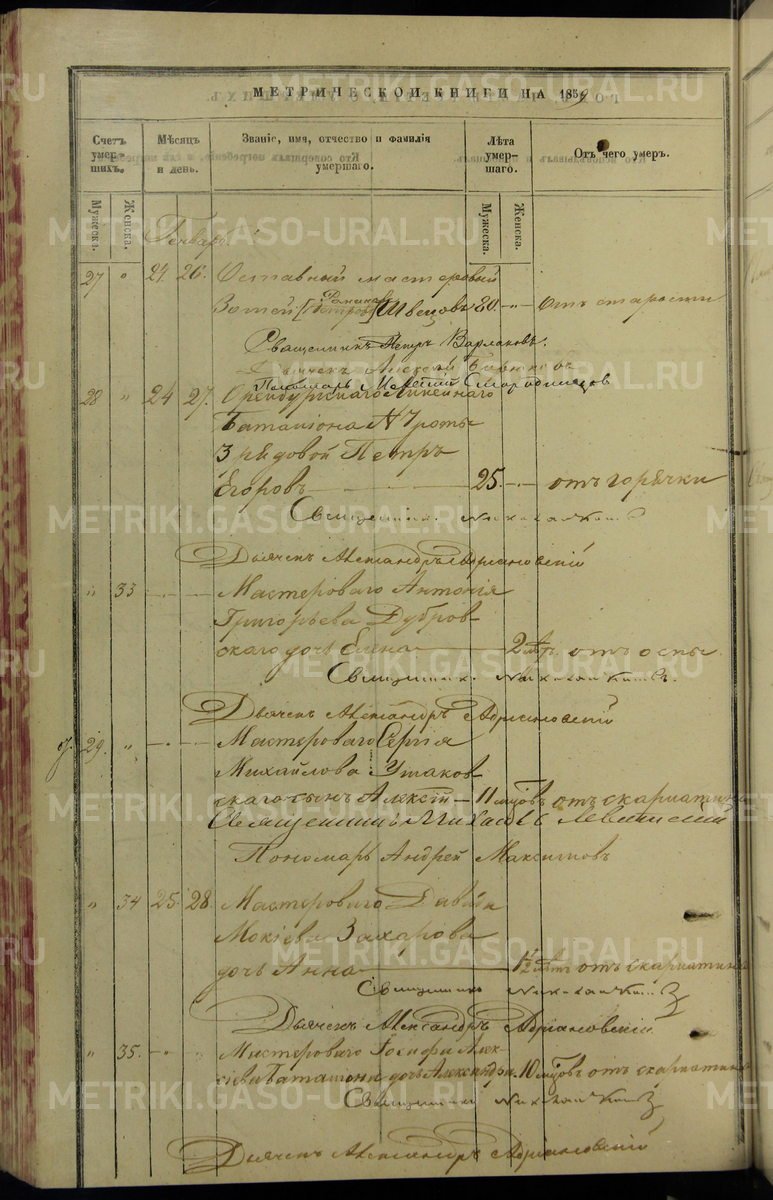 МЕТРИЧЕСКОЙ КНИГИ НА 1859
Счетъ умер-шихъ.
Мѣсяцъ и день.
Званіе, имя, отчество и фамилія умершаго.
Лѣта умер-шаго.
Отъ чего умеръ.
Мужеска.
Женска.
Мужеска.
Женска.
Генварь
27 " 24. 26. Отставный мастеровый
Зотей [Петровъ] Швецовъ 80 -"- отъ старости
Священникъ Петръ Варлаковъ.
Дьячекъ Алексій
Пономарь
28 " 24 27. Оренбургскаго Линейнаго
Баталіона № роты
рядовой Петръ
Егоровъ 25. -"- отъ горячки
Священникъ
Дьячекъ Александръ Адріановскій
" 33 -"- -"- Мастероваго Антонія
Григорьева Дубров
скаго дочь Елена 2 лѣтъ отъ оспы.
Священник.
Дьячекъ Александръ Адріановскій
29. " -"- -"- Мастероваго Сергія
Михайлова Ушаков
скаго сынъ Алексій 11 мцовъ отъ скарлатины
Священникъ Михаилъ
Пономарь Андрей Максимовъ
" 34 25. 28. Мастероваго Давида
Мокіева Захарова
дочь Анна 1½ лѣтъ отъ скарлатины
Священникъ
Дьячекъ Александръ Адріановскій.
" 35. -"- " Мастероваго Іосифа Алек-
сіева дочь Александра. 10 мцовъ отъ скарлатины
Священникъ
Дьячекъ Александръ Адріановскій
METRIKI.GASO-URAL.RU